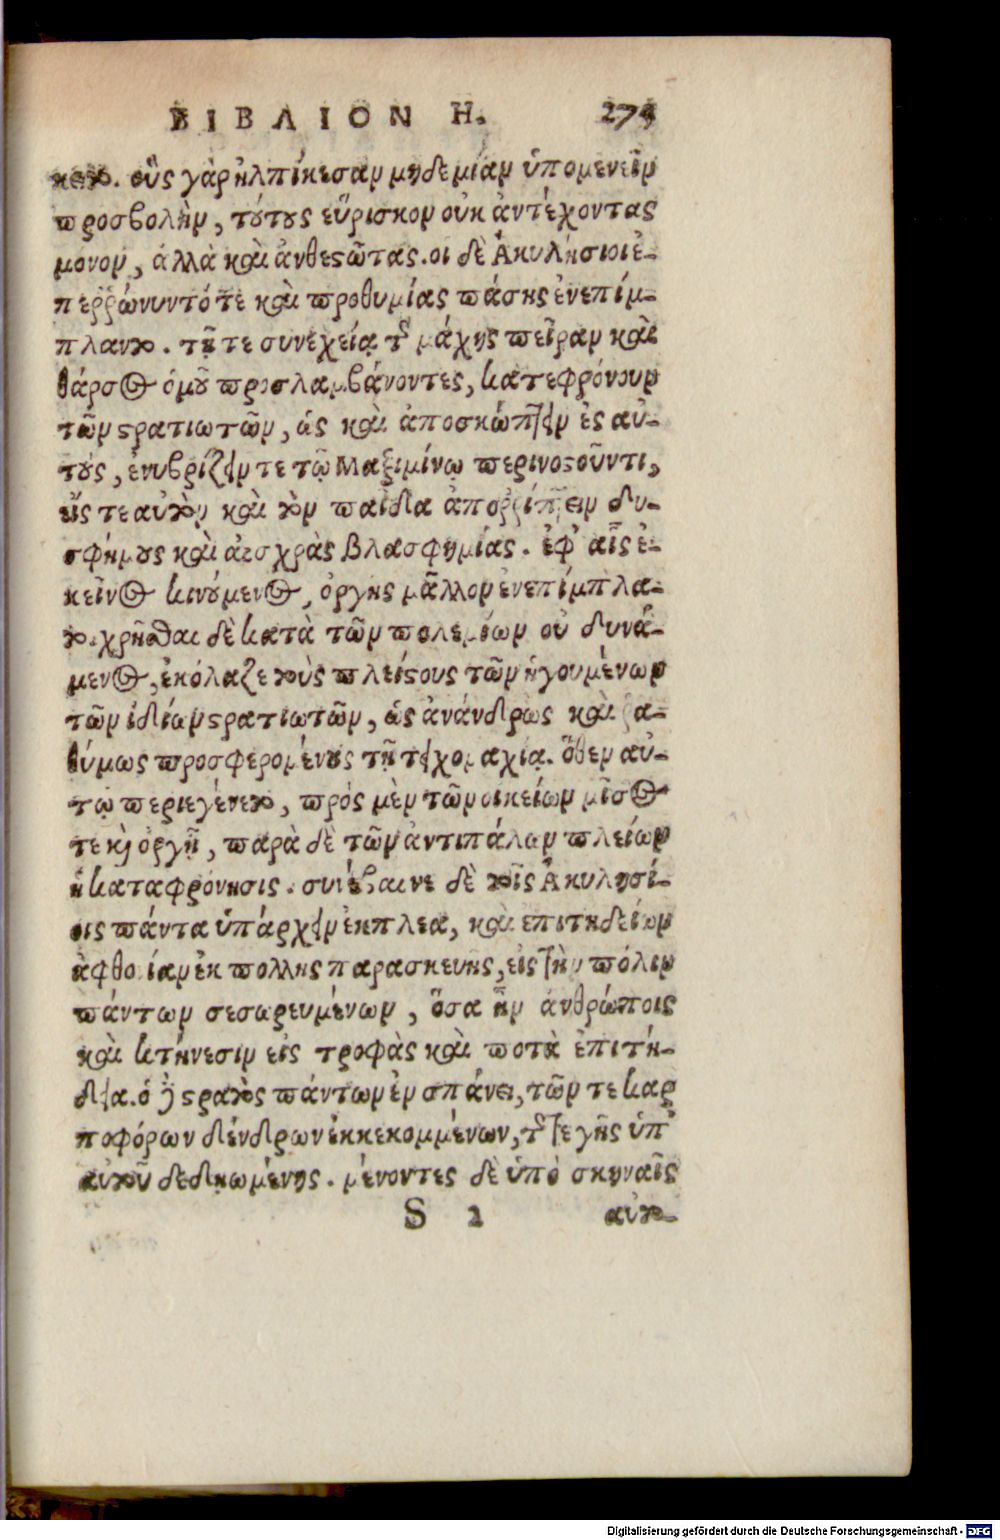 ΒΙΒΛΙΟΝ Η. 275
κετο. οὓς γὰρ ἠλπίκεσαν μηδεμίαν ὑπομενεῖν
προσβολὴν, τούτους εὕρισκον οὐκ ἀντέχοντας
μόνον, ἀλλὰ καὶ ἀνθεστῶτας. οι δὲ Ἀκυλήσιοι ἐ-
περῤώνυντό τε καὶ προθυμίας πάσης ἐνεπίμ-
πλαντο. τῇ τε συνεχείᾳ τῆς μάχης πεῖραν καὶ
θάρσος ὁμοῦ προσλαμβάνοντες, κατεφρόνουν
τῶν στρατιωτῶν, ὡς καὶ ἀποσκώπτειν ἐς αὐ-
τοὺς, ἐνυβρίζειν τε τῷ Μαξιμίνῳ περινοστοῦντι,
εἴς τε αὐτὸν καὶ τὸν παῖδα ἀποῤῥίπτειν δυ-
σφήμους καὶ αἰσχρὰς βλασφημίας. ἐφ' αἷς ἐ-
κεῖνος κινούμενος, ὀργῆς μᾶλλον ἐνεπίμπλα-
το. χρῆσθαι δὲ κατὰ τῶν πολεμίων οὐ δυνά-
μενος, ἐκόλαζε τοὺς πλείστους τῶν ἡγουμένων
τῶν ἰδίων στρατιωτῶν, ὡς ἀνάνδρως καὶ ῥα-
θύμως προσφερομένους τῇ τειχομαχίᾳ. ὅθεν αὐ-
τῷ περιεγένετο, πρός μὲν τῶν οικείων μῖσος
τε καὶ ὀργὴ, παρὰ δὲ τῶν ἀντιπάλων πλείων
ἡ καταφρόνησις. συνέβαινε δὲ τοῖς Ἀκυλησί-
οις πάντα ὑπάρχειν ἔκπλεα, καὶ ἐπιτηδείων
ἀφθονίαν ἐκ πολλῆς παρασκευῆς, εἰς τὴν πόλιν
πάντων σεσωρευμένων, ὅσα ἦν ἀνθρώποις
καὶ κτήνεσιν εἰς τροφὰς καὶ ποτὰ ἐπιτή-
δεια. ὁ δὲ στρατὸς πάντων ἐν σπάνει, τῶν τε καρ
ποφόρων δένδρων ἐκκεκομμένων, τῆς τε γῆς ὑπ'
αὐτοῦ δεδῃωμένης. μένοντες δὲ ὑπὸ σκηναῖς
S 2 αὐτο-
Digitalisierung gefördert durch die Deutsche Forschungsgemeinschaft - DFG